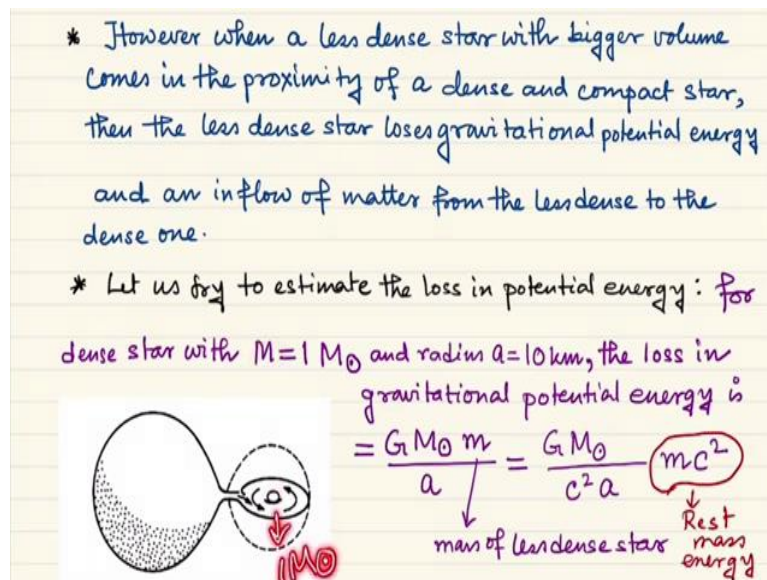 * However when a less dense star with bigger volume
comes in the proximity of a dense and compact star,
then the less dense star loses gravitational potential energy
and an inflow of matter from the less dense to the
dense one.
* Let us try to estimate the loss in potential energy: for
dense star with M = 1 M⊙ and radius a = 10 km, the loss in
gravitational potential energy is
= GM⊙ m / a = GM⊙ / c²a mc²
mass of less dense star
Rest
mass
energy
1M⊙